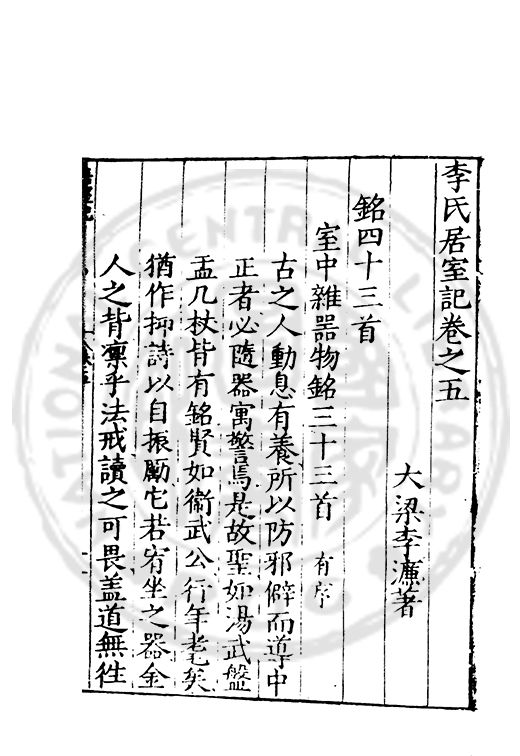 李氏居室記卷之五
大梁李濂著
銘四十三首
室中雜器物銘三十三首 有序
古之人動息有養所以防邪僻而導中
正者必隨器寓警焉是故聖如湯武盤
盂几杖皆有銘賢如衞武公行年耄矣
猶作抑詩以自振勵它若宥坐之器金
人之背凛乎法戒讀之可畏盖道無徃